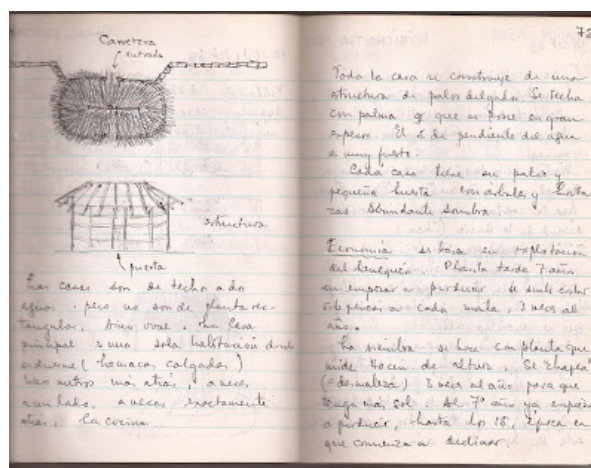 Carretera
entrada
estructura
puerta
Las casas son de techo a dos
aguas, pero no son de planta rec-
tangular, sino oval. La casa
principal es una sola habitación donde
se duerme (hamacas colgadas)
unos metros más atrás, a veces
a un lado, a veces exactamente
atrás, la cocina.
72
Toda la casa se construye de una
estructura de palos delgada. Se techa
con palma que se pone en gran
espesor. El % de pendiente del agua
es muy fuerte.
Cada casa tiene su patio y
pequeña huerta con árboles y horta
zas. Abundante sombra.
Economía se basa en explotación
del henequén. Planta tarda 7 años
en empezar a producir. se suele cortar
5-6 pencas a cada mata, 3 veces al
año.
La siembra se hace con planta que
mide 40 cm de altura. Se "chapea"
(= desmaleza) 3 veces al año para que
tenga más sol. Al 7º año ya empieza
a producir, hasta los 15, época en
que comienza a declinar.